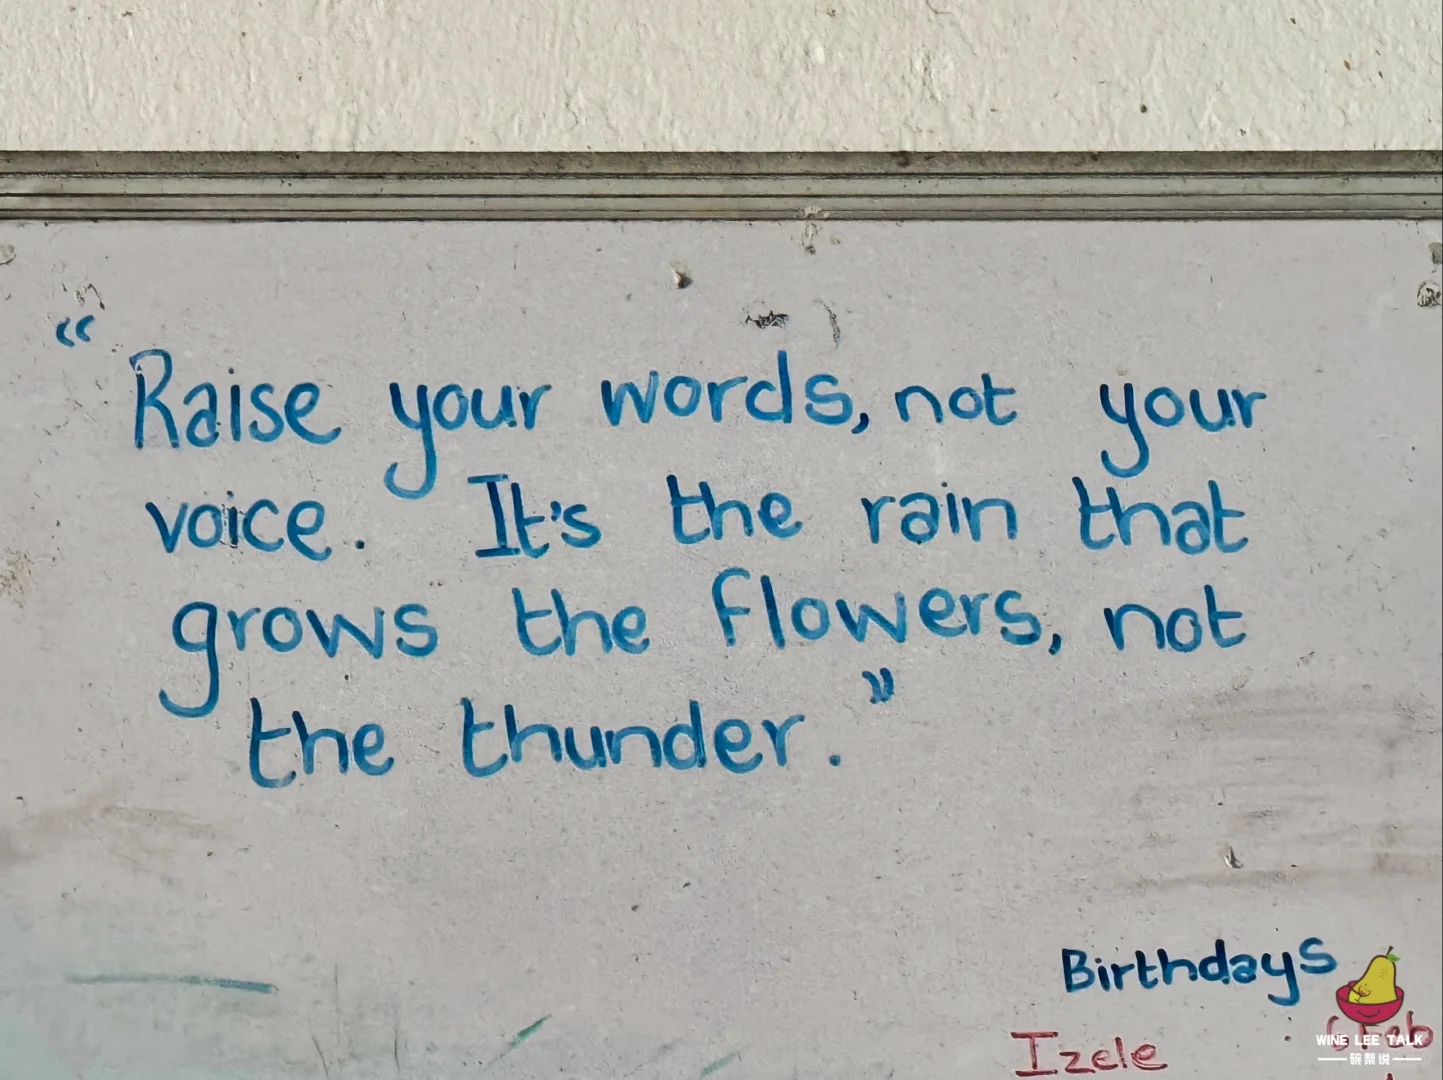 “Raise your words, not your
voice. It's the rain that
grows the flowers, not
the thunder.”
Birthdays
Izele Feb
WINE LEE TALK
碗梨说